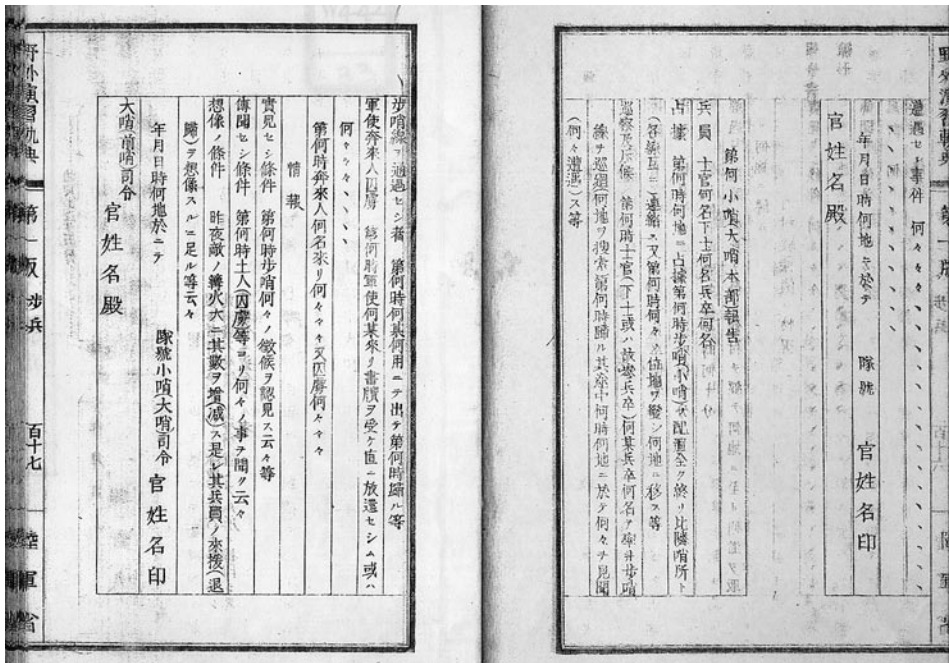 遭遇セシ事件 何々々
年月日時何地ニ於テ 隊號 官姓名印
官姓名殿
第何小哨大哨本部報告
兵員 士官何名下士何名兵卒何名
占據 第何時何地ニ占據第何時步哨(小哨)ノ配置全ク終リ比隣哨所ト
連絡ス又第何時何々ノ位地ヲ撥シ何地ニ移ス等
巡察及斥候 第何時士官(下士或ハ 兵卒)何某兵卒何名ヲ率ヰ步哨
線ヲ巡廻(何地ヲ搜索)第何時歸ル其途中何時何地ニ於テ何々ヲ見聞
(何々遭遇)ス等
步哨線ヲ通過セシ者 第何時何某何用ニテ出テ第何時歸ル等
軍使奔來人囚虜 第何時軍使何某來リ書牘ヲ受ケ直ニ放還セシム或ハ
何々々々
第何時奔來人何名來リ何々々々又囚虜何々々々
情報
實見セシ條件 第何時步哨何々ノ徵候ヲ認見ス云々等
傳聞セシ條件 第何時土人(囚虜等)ヨリ何々ノ事ヲ聞ク云々
想像ノ條件 昨夜敵ノ篝火大ニ其數ヲ增(減)ス是レ其兵員ノ來援(退
歸)ヲ想像スルニ足ル等云々
年月日時何地於ニテ 隊號小哨(大哨)司令 官姓名印
大哨(前哨)司令
官姓名殿
野外演習軌典 第一版 步兵 百十七 陸軍省